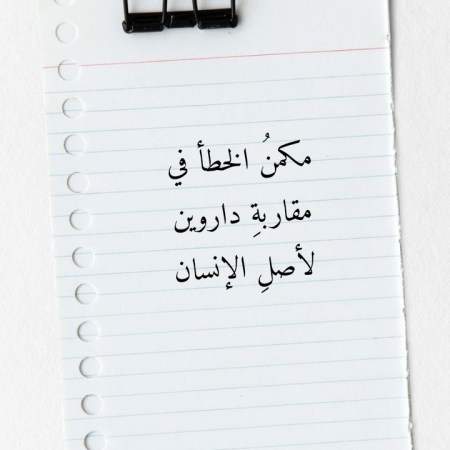 مكمنُ الخطأ في
مقاربةِ داروين
لأصلِ الإنسان